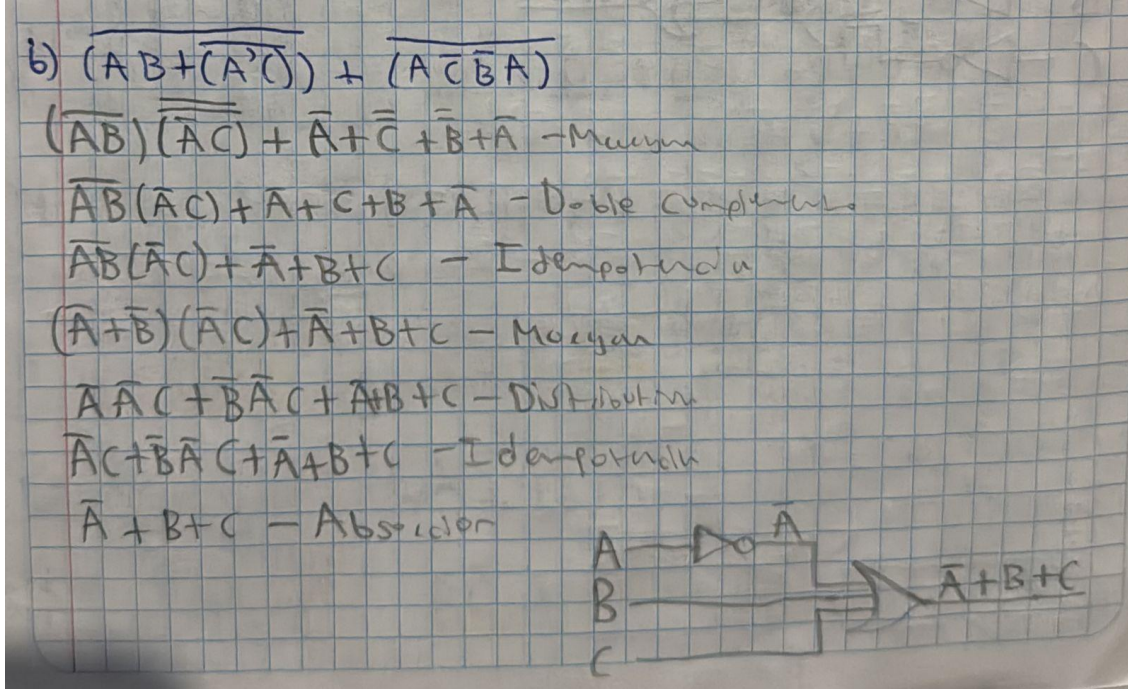 b) (\overline{AB+(\overline{A'C})}) + (\overline{A\overline{C}\overline{B}A})
(\overline{AB})(\overline{\overline{\overline{A}C}}) + \overline{A}+\overline{\overline{C}}+\overline{\overline{B}}+\overline{A} - Morgan
\overline{AB}(\overline{A}C)+\overline{A}+C+B+\overline{A} - Doble complemento
\overline{AB}(\overline{A}C)+\overline{A}+B+C - Idempotencia
(\overline{A}+\overline{B})(\overline{A}C)+\overline{A}+B+C - Morgan
\overline{A}\overline{A}C+\overline{B}\overline{A}C+\overline{A}+B+C - Distributiva
\overline{A}C+\overline{B}\overline{A}C+\overline{A}+B+C - Idempotencia
\overline{A}+B+C - Absorcion
A \overline{A}
B \overline{A}+B+C
C